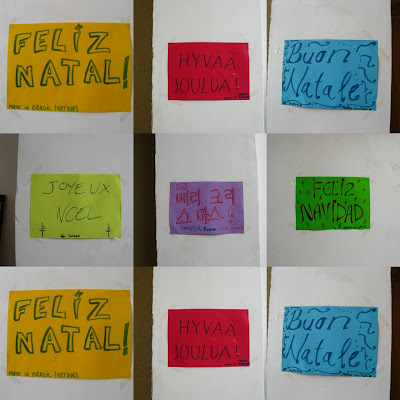 FELIZ
NATAL!
MADE IN BRASIL (ARTHUR)
HYVÄÄ
JOULUA!
Buon
Natale
JOYEUX
NOEL
메리 크리
스마스!
FELIZ
NAVIDAD
FELIZ
NATAL!
MADE IN BRASIL (ARTHUR)
HYVÄÄ
JOULUA!
Buon
Natale